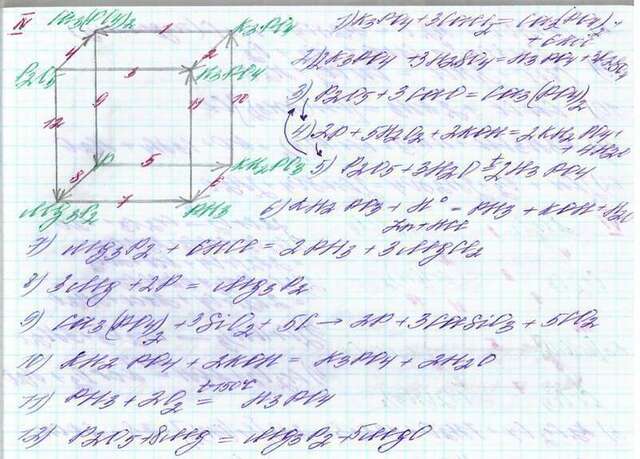 IV
Ca3(PO4)2 1 K3PO4
4 2
P2O5 3 H3PO4
9 11 10
12
P 5 KH2PO4
8 6
Mg3P2 7 PH3
1) K3PO4 + 3CaCl2 = Ca3(PO4)2 + 6KCl
2) 2K3PO4 + 3H2SO4 = H3PO4 + 3K2SO4
3) P2O5 + 3CaO = Ca3(PO4)2
4) 2P + 5H2O2 + 2KOH = 2KH2PO4 + 4H2O
5) P2O5 + 3H2O t= 2H3PO4
6) KH2PO3 + H° = PH3 + KOH + H2O
Zn + HCl
7) Mg3P2 + 6HCl = 2PH3 + 3MgCl2
8) 3Mg + 2P = Mg3P2
9) Ca3(PO4)2 + 3SiO2 + 5C → 2P + 3CaSiO3 + 5CO2
10) KH2PO4 + 2KOH = K3PO4 + 2H2O
11) PH3 + 2O2 t=150°C = H3PO4
12) P2O5 + 8Mg = Mg3P2 + 5MgO